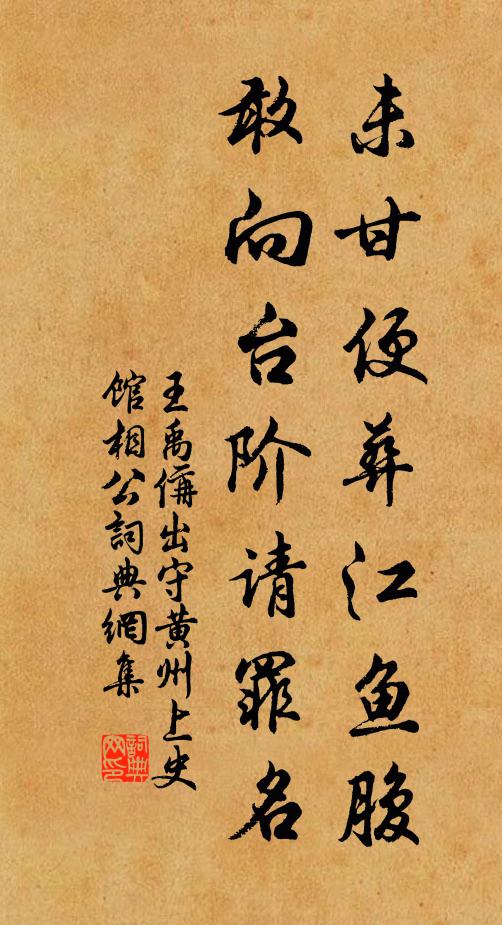 未甘便葬江鱼腹
敢向台阶请罪名
王禹偁出守黄州上史
馆相公詞典網集
詞典网印